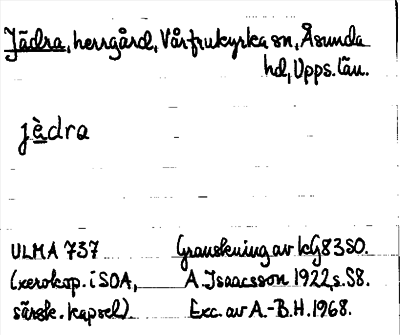 Jädra, herrgård, Vårfrukyrka sn, Åsunda
hd, Upps. län.
jèdra
ULMA 737 Granskning av kG83SO.
(xerokop. i SOA, A. Isaacsson 1922, s. 58.
särsk. kapsel) Exc. av A.-B.H. 1968.